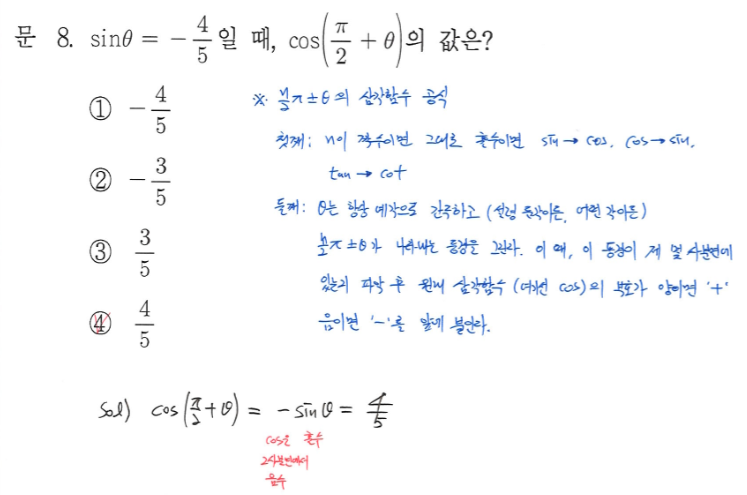 문 8. sinθ = -4/5 일 때, cos(π/2 + θ)의 값은?
① -4/5
② -3/5
③ 3/5
④ 4/5
※ n/2 π ± θ의 삼각함수 공식
첫째: n이 짝수이면 그대로 홀수이면 sin → cos, cos → sin,
tan → cot
둘째: θ는 항상 예각으로 간주하고 (설령 둔각이든, 어떤 각이든)
n/2 π ± θ가 나타내는 동경을 그린다. 이 때, 이 동경이 제 몇 사분면에
있는지 파악 후 원래 삼각함수 (여기선 cos)의 부호가 양이면 '+'
음이면 '-'를 앞에 붙인다.
sol) cos(π/2 + θ) = -sinθ = 4/5
cos은 홀수
2사분면에서
음수